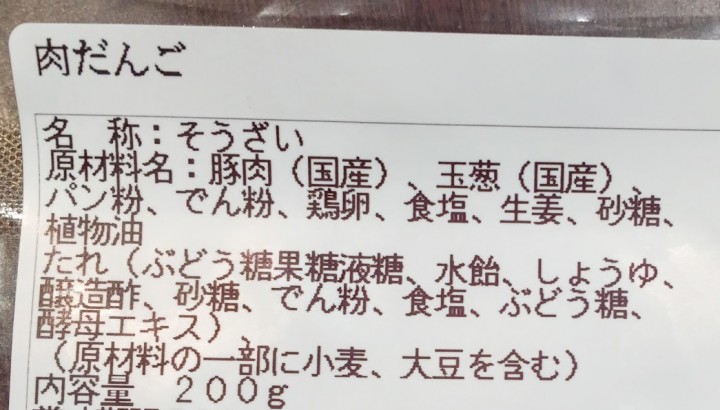 肉だんご
名　称：そうざい
原材料名：豚肉（国産）、玉葱（国産）、
パン粉、でん粉、鶏卵、食塩、生姜、砂糖、
植物油
たれ（ぶどう糖果糖液糖、水飴、しょうゆ、
醸造酢、砂糖、でん粉、食塩、ぶどう糖、
酵母エキス）、
（原材料の一部に小麦、大豆を含む）
内容量　２００ｇ